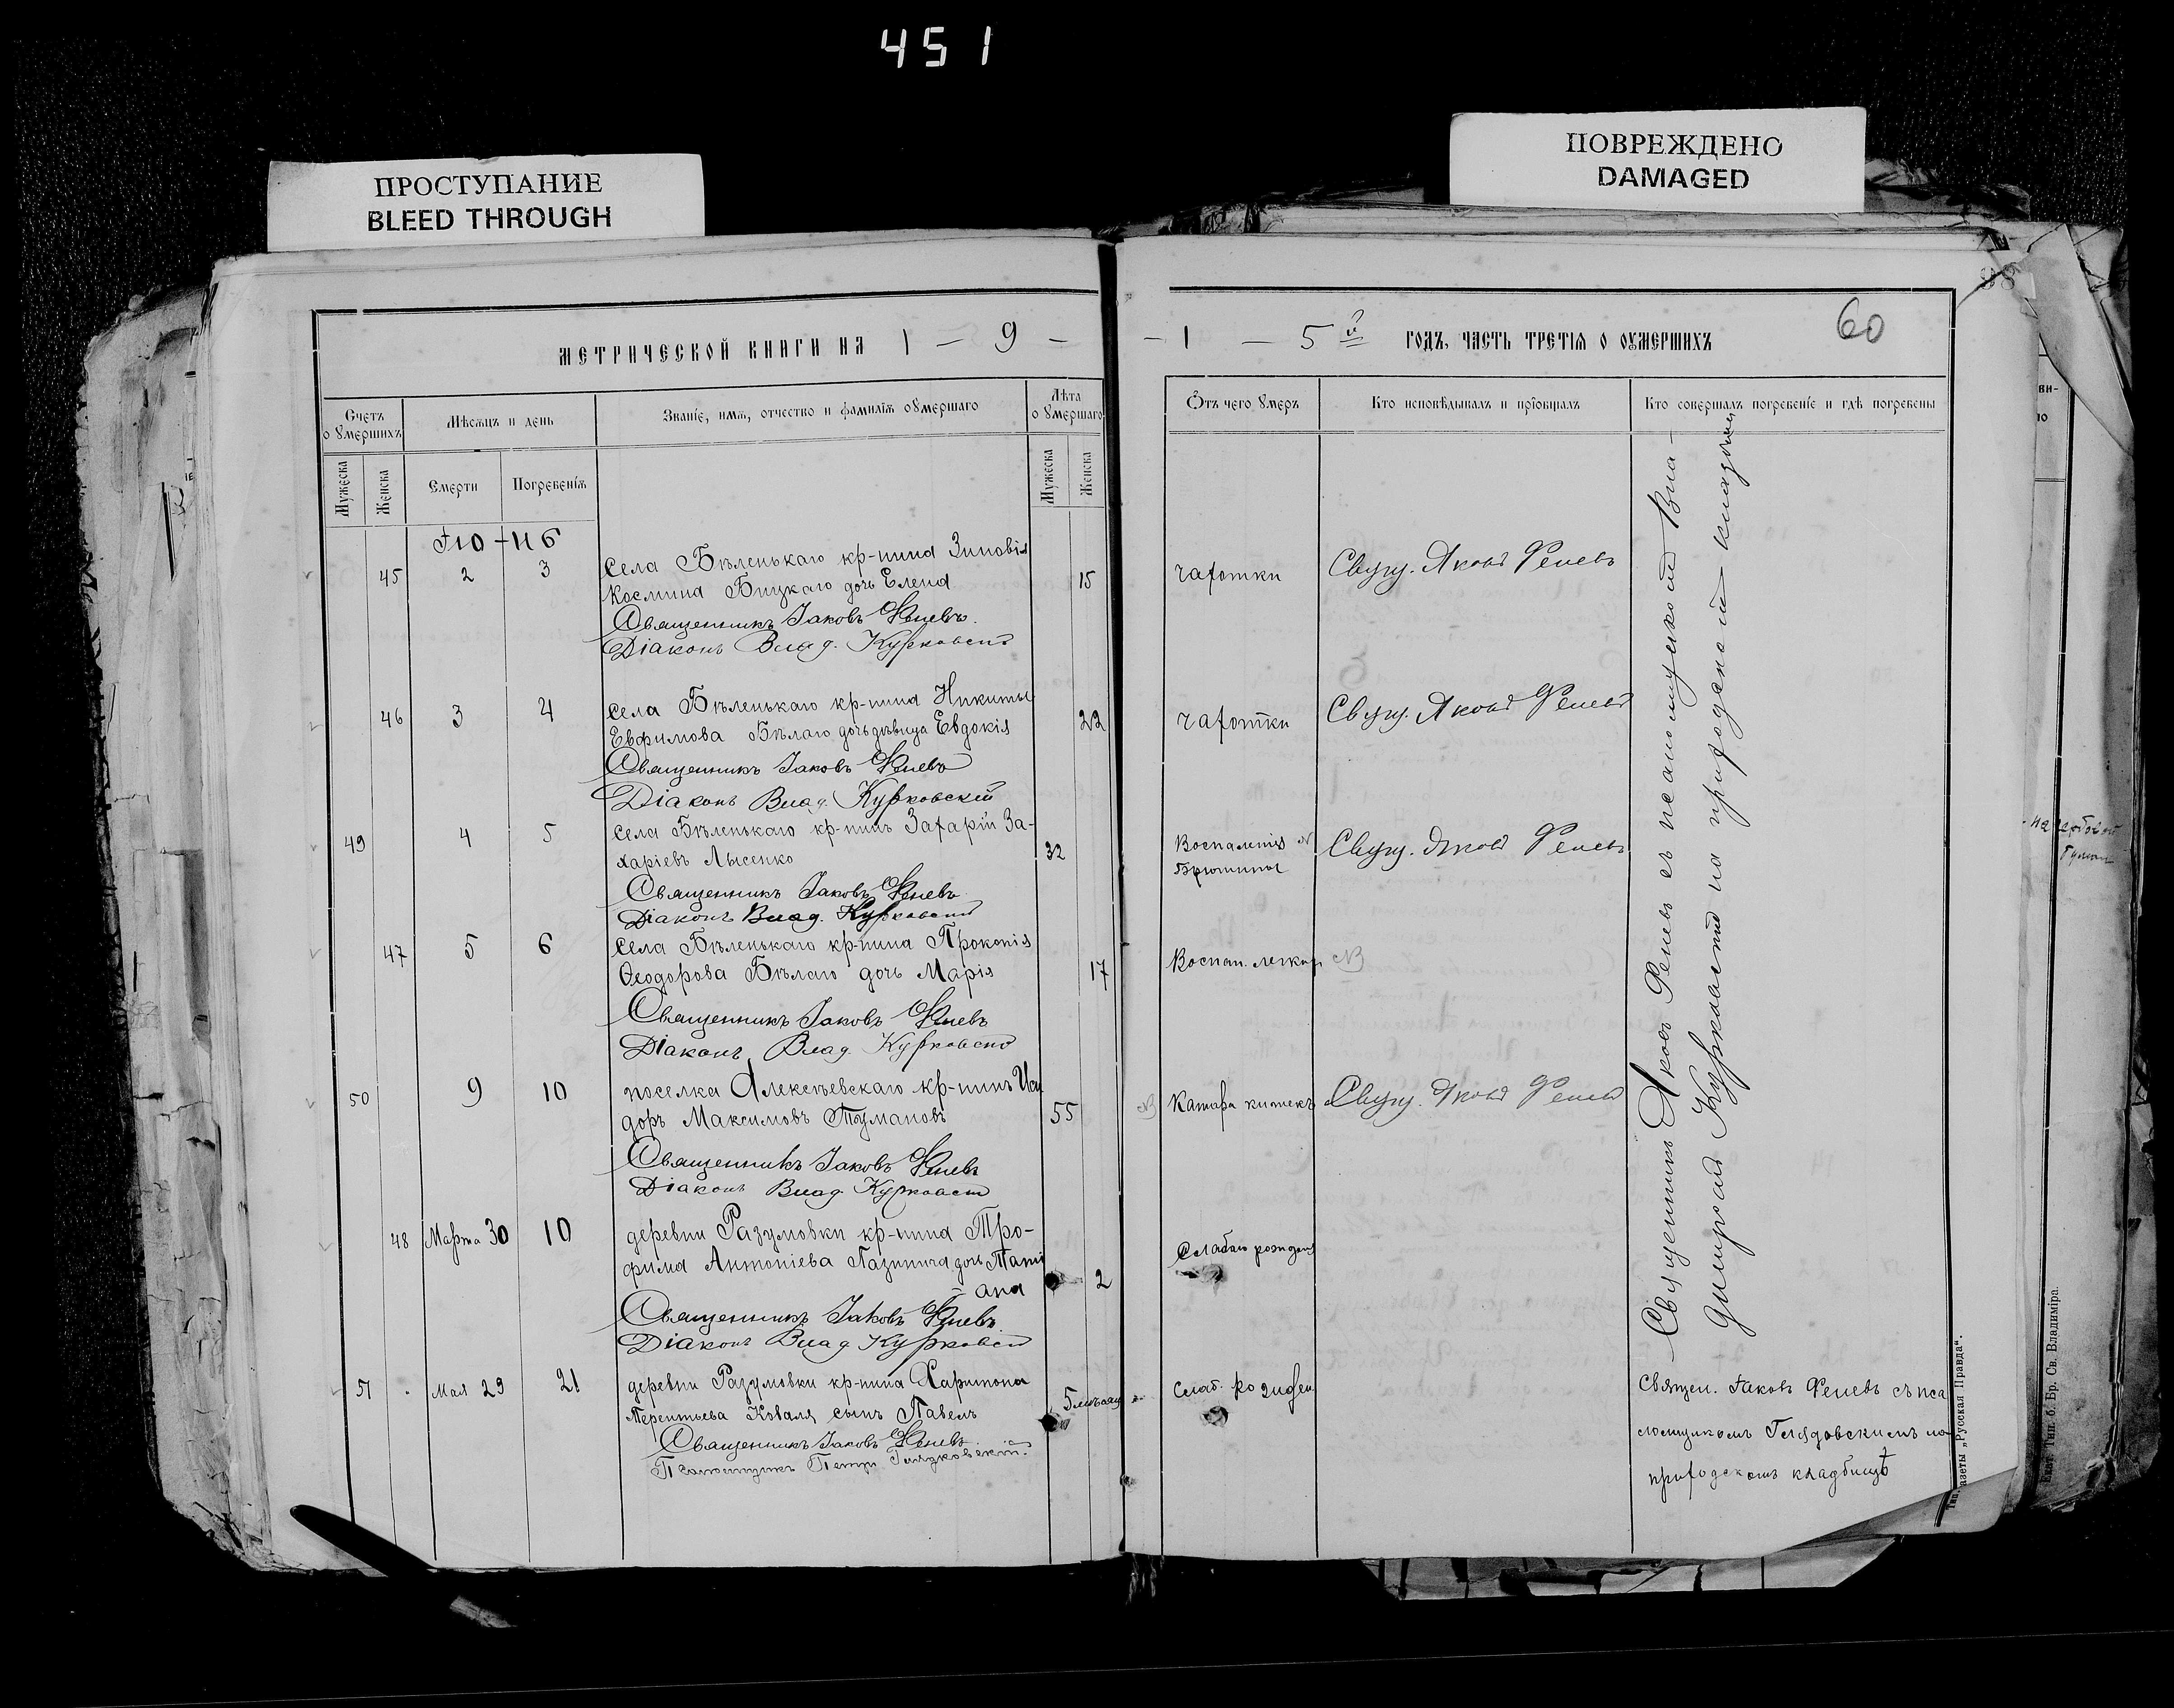 451
ПРОСТУПАНИЕ
BLEED THROUGH
ПОВРЕЖДЕНО
DAMAGED
МЕТРИЧЕСКОЙ КНИГИ НА 1 — 9 —
— 1 — 5й ГОДЪ, ЧАСТЬ ТРЕТІЯ О ОУМЕРШИХЪ
60
98
Счетъ оумершихъ
Мѣсяцъ и день
Званіе, имя, отчество и фамилія оумершаго
Лѣта оумершаго
Отъ чего умеръ
Кто исповѣдывалъ и пріобщалъ
Кто совершалъ погребеніе и гдѣ погребены
Мужеска
Женска
Смерти
Погребенія
Мужеска
Женска
45 2 3 села Бѣленькаго кр-нина Зиновія
Космина Бицкаго дочь Елена 15 чахотки Свящ. Яковъ Феневъ
Священникъ Іаковъ Феневъ.
Діаконъ Влад. Курковскій
46 3 4 села Бѣленькаго кр-нина Никиты
Евфимова Бѣлаго дочь дѣвица Евдокія 22 чахотки Свящ. Яковъ Феневъ
Священникъ Іаковъ Феневъ
Діаконъ Влад. Курковскій
49 4 5 села Бѣленькаго кр-нинъ Захарій За-
харіевъ Лысенко 32 Воспаленія Брюшины Свящ. Яковъ Феневъ
Священникъ Іаковъ Феневъ
Діаконъ Влад. Курковскій
47 5 6 села Бѣленькаго кр-нина Прокопія
Ѳеодорова Бѣлаго дочь Марія 17 Воспал. легких NB
Священникъ Іаковъ Феневъ
Діаконъ Влад. Курковскій
50 9 10 поселка Алексѣевскаго кр-нинъ Иси
доръ Максимовъ Тумановъ 55 NB Катара кишекъ Свящ. Яковъ Феневъ
Священникъ Іаковъ Феневъ
Діаконъ Влад. Курковскій
48 Марта 30 10 деревни Разумовки кр-нина Тро-
фима Антоніева дочь Тати
ана 2 Слабаго рожден
Священникъ Іаковъ Феневъ
Діаконъ Влад. Курковскій
51 Мая 29 21 деревни Разумовки кр-нина Харитона
Терентьева Коваля сынъ Павелъ 5 Слаб. рожден
Священникъ Іаковъ Феневъ.
Псаломщикъ Петръ
Священникъ Яковъ Феневъ съ псаломщикомъ Вла-
диміромъ Курковскимъ на приходскомъ кладбищѣ
Священ. Іаковъ Феневъ съ пса
ломщикомъ на
приходскомъ кладбищѣ
Тип. газеты „Русская Правда“.
Тип. б. Бр. Св. Владиміра.